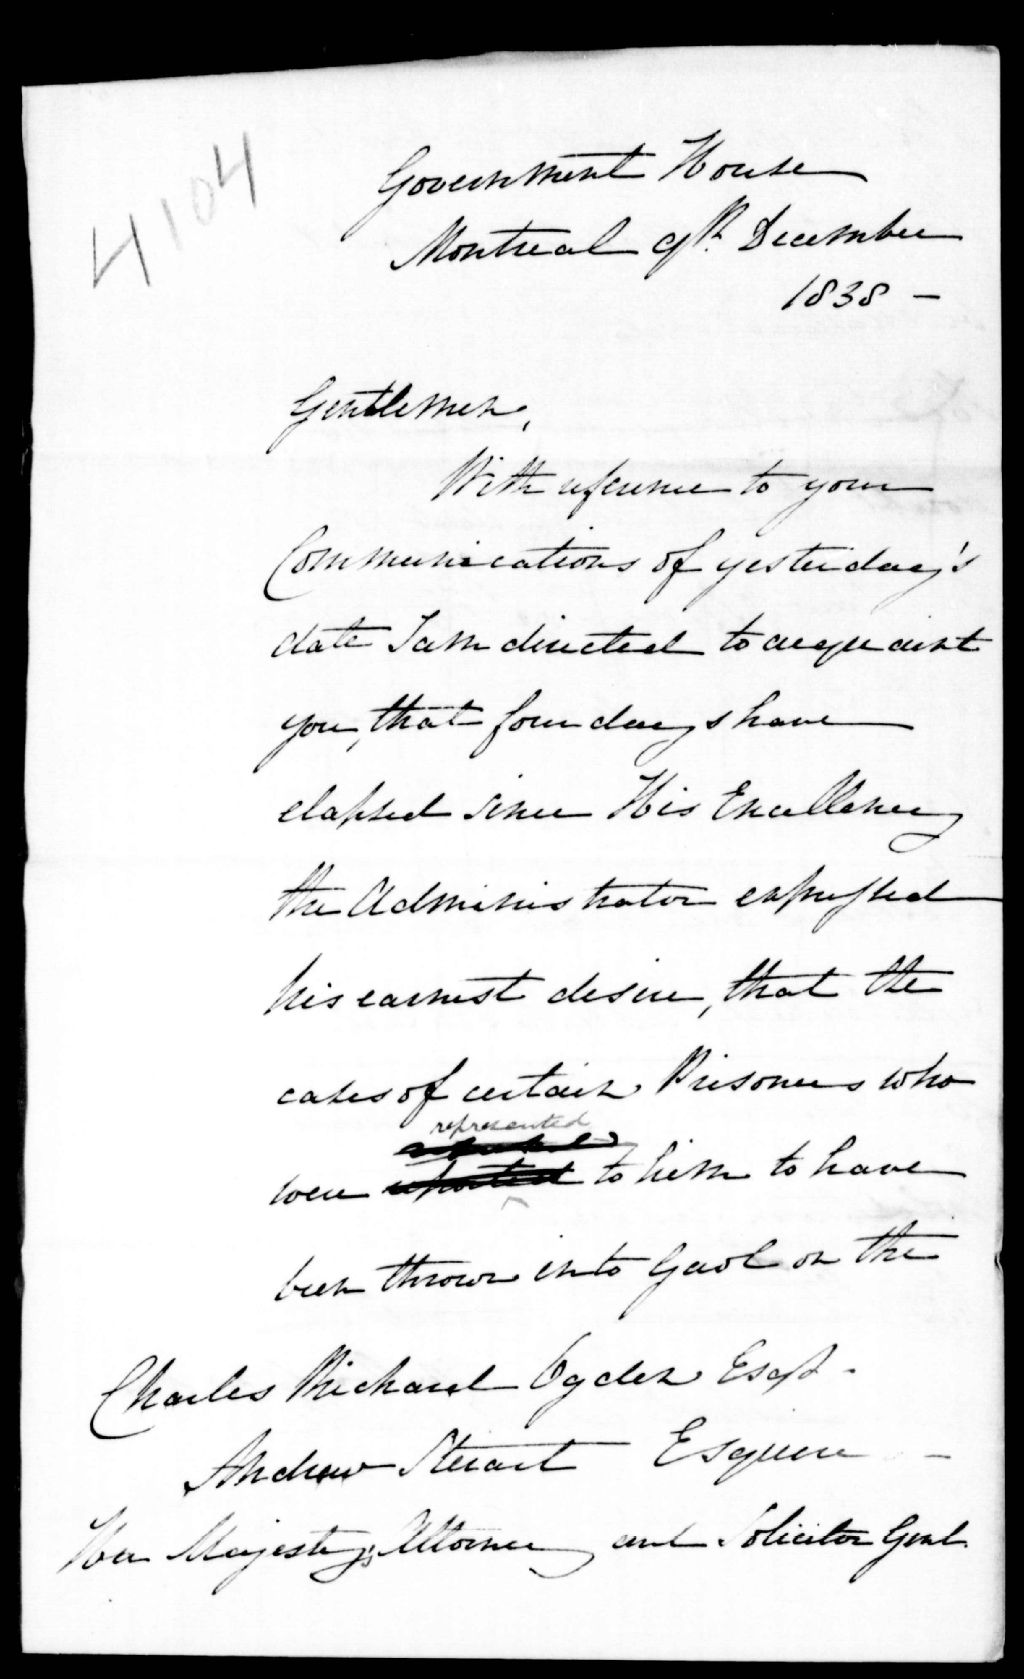 4104
Government House
Montreal 9th. December
1838 -
Gentlemen,
With reference to your
Communications of yesterday's
date I am directed to acquaint
you, that four days have
elapsed since His Excellency
the Administrator expressed
his earnest desire, that the
cases of certain Prisoners who
represented
were reported to him to have
been thrown into Gaol on the
Charles Richard Ogden Esqr.
Andrew Stuart Esquire -
Her Majesty's Attorney and Solicitor Genl.